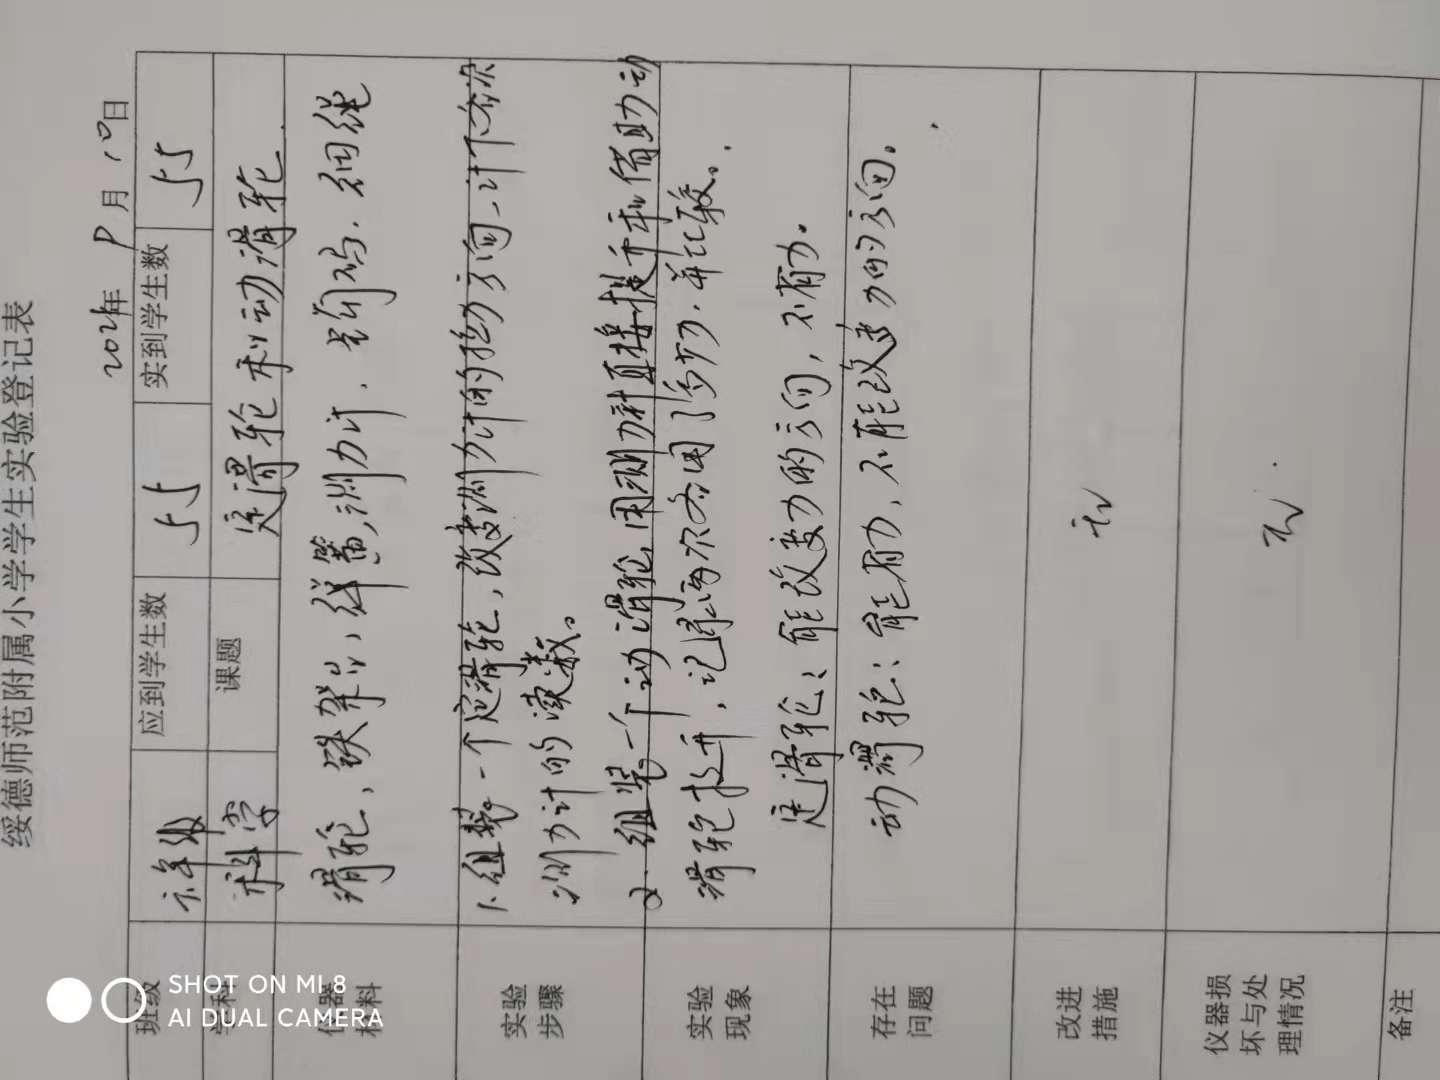 绥德师范附属小学学生实验登记表
2021年 9月10日
班级 六年级 应到学生数 55 实到学生数 55
学科 科学 课题 定滑轮和动滑轮
仪器材料 滑轮、铁架台、弹簧测力计、钩码、细绳
实验步骤 1、组装一个定滑轮,改变测力计的拉力方向,计下每次
测力计的读数。
2、组装一个动滑轮,用测力计直接提升和借助动
滑轮提升,记录两次各用了多少力,并比较。
实验现象 定滑轮:能改变力的方向,不省力。
动滑轮:能省力,不能改变力的方向。
存在问题
改进措施 无
仪器损坏与处理情况 无
备注
SHOT ON MI 8
AI DUAL CAMERA